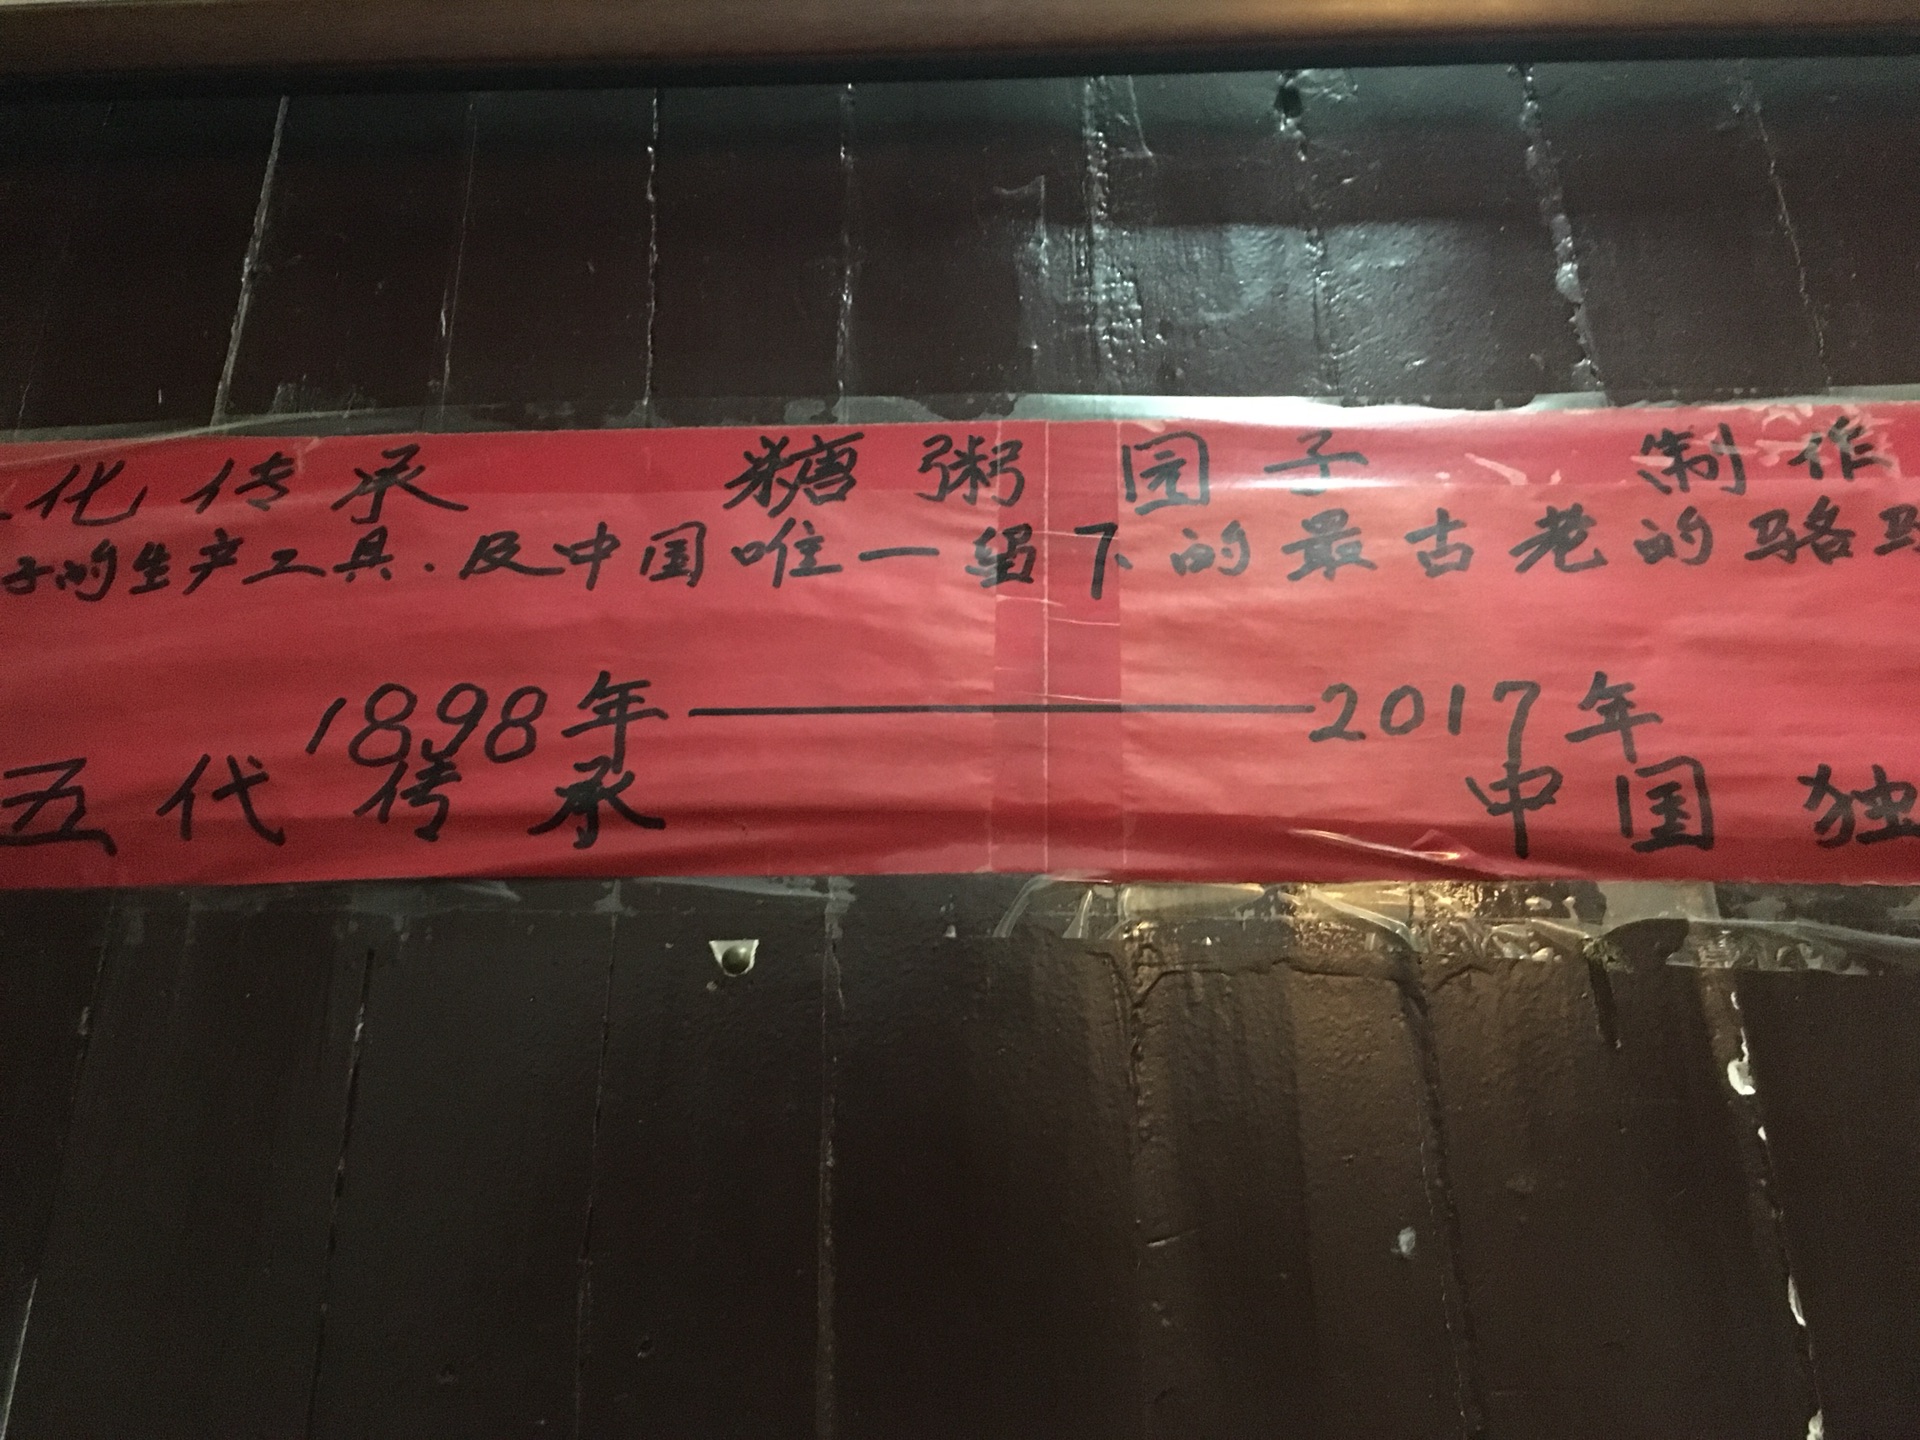 化传承 糖粥园子 制作
子的生产工具.及中国唯一留下的最古老的骆
1898年——2017年
五代传承 中国独